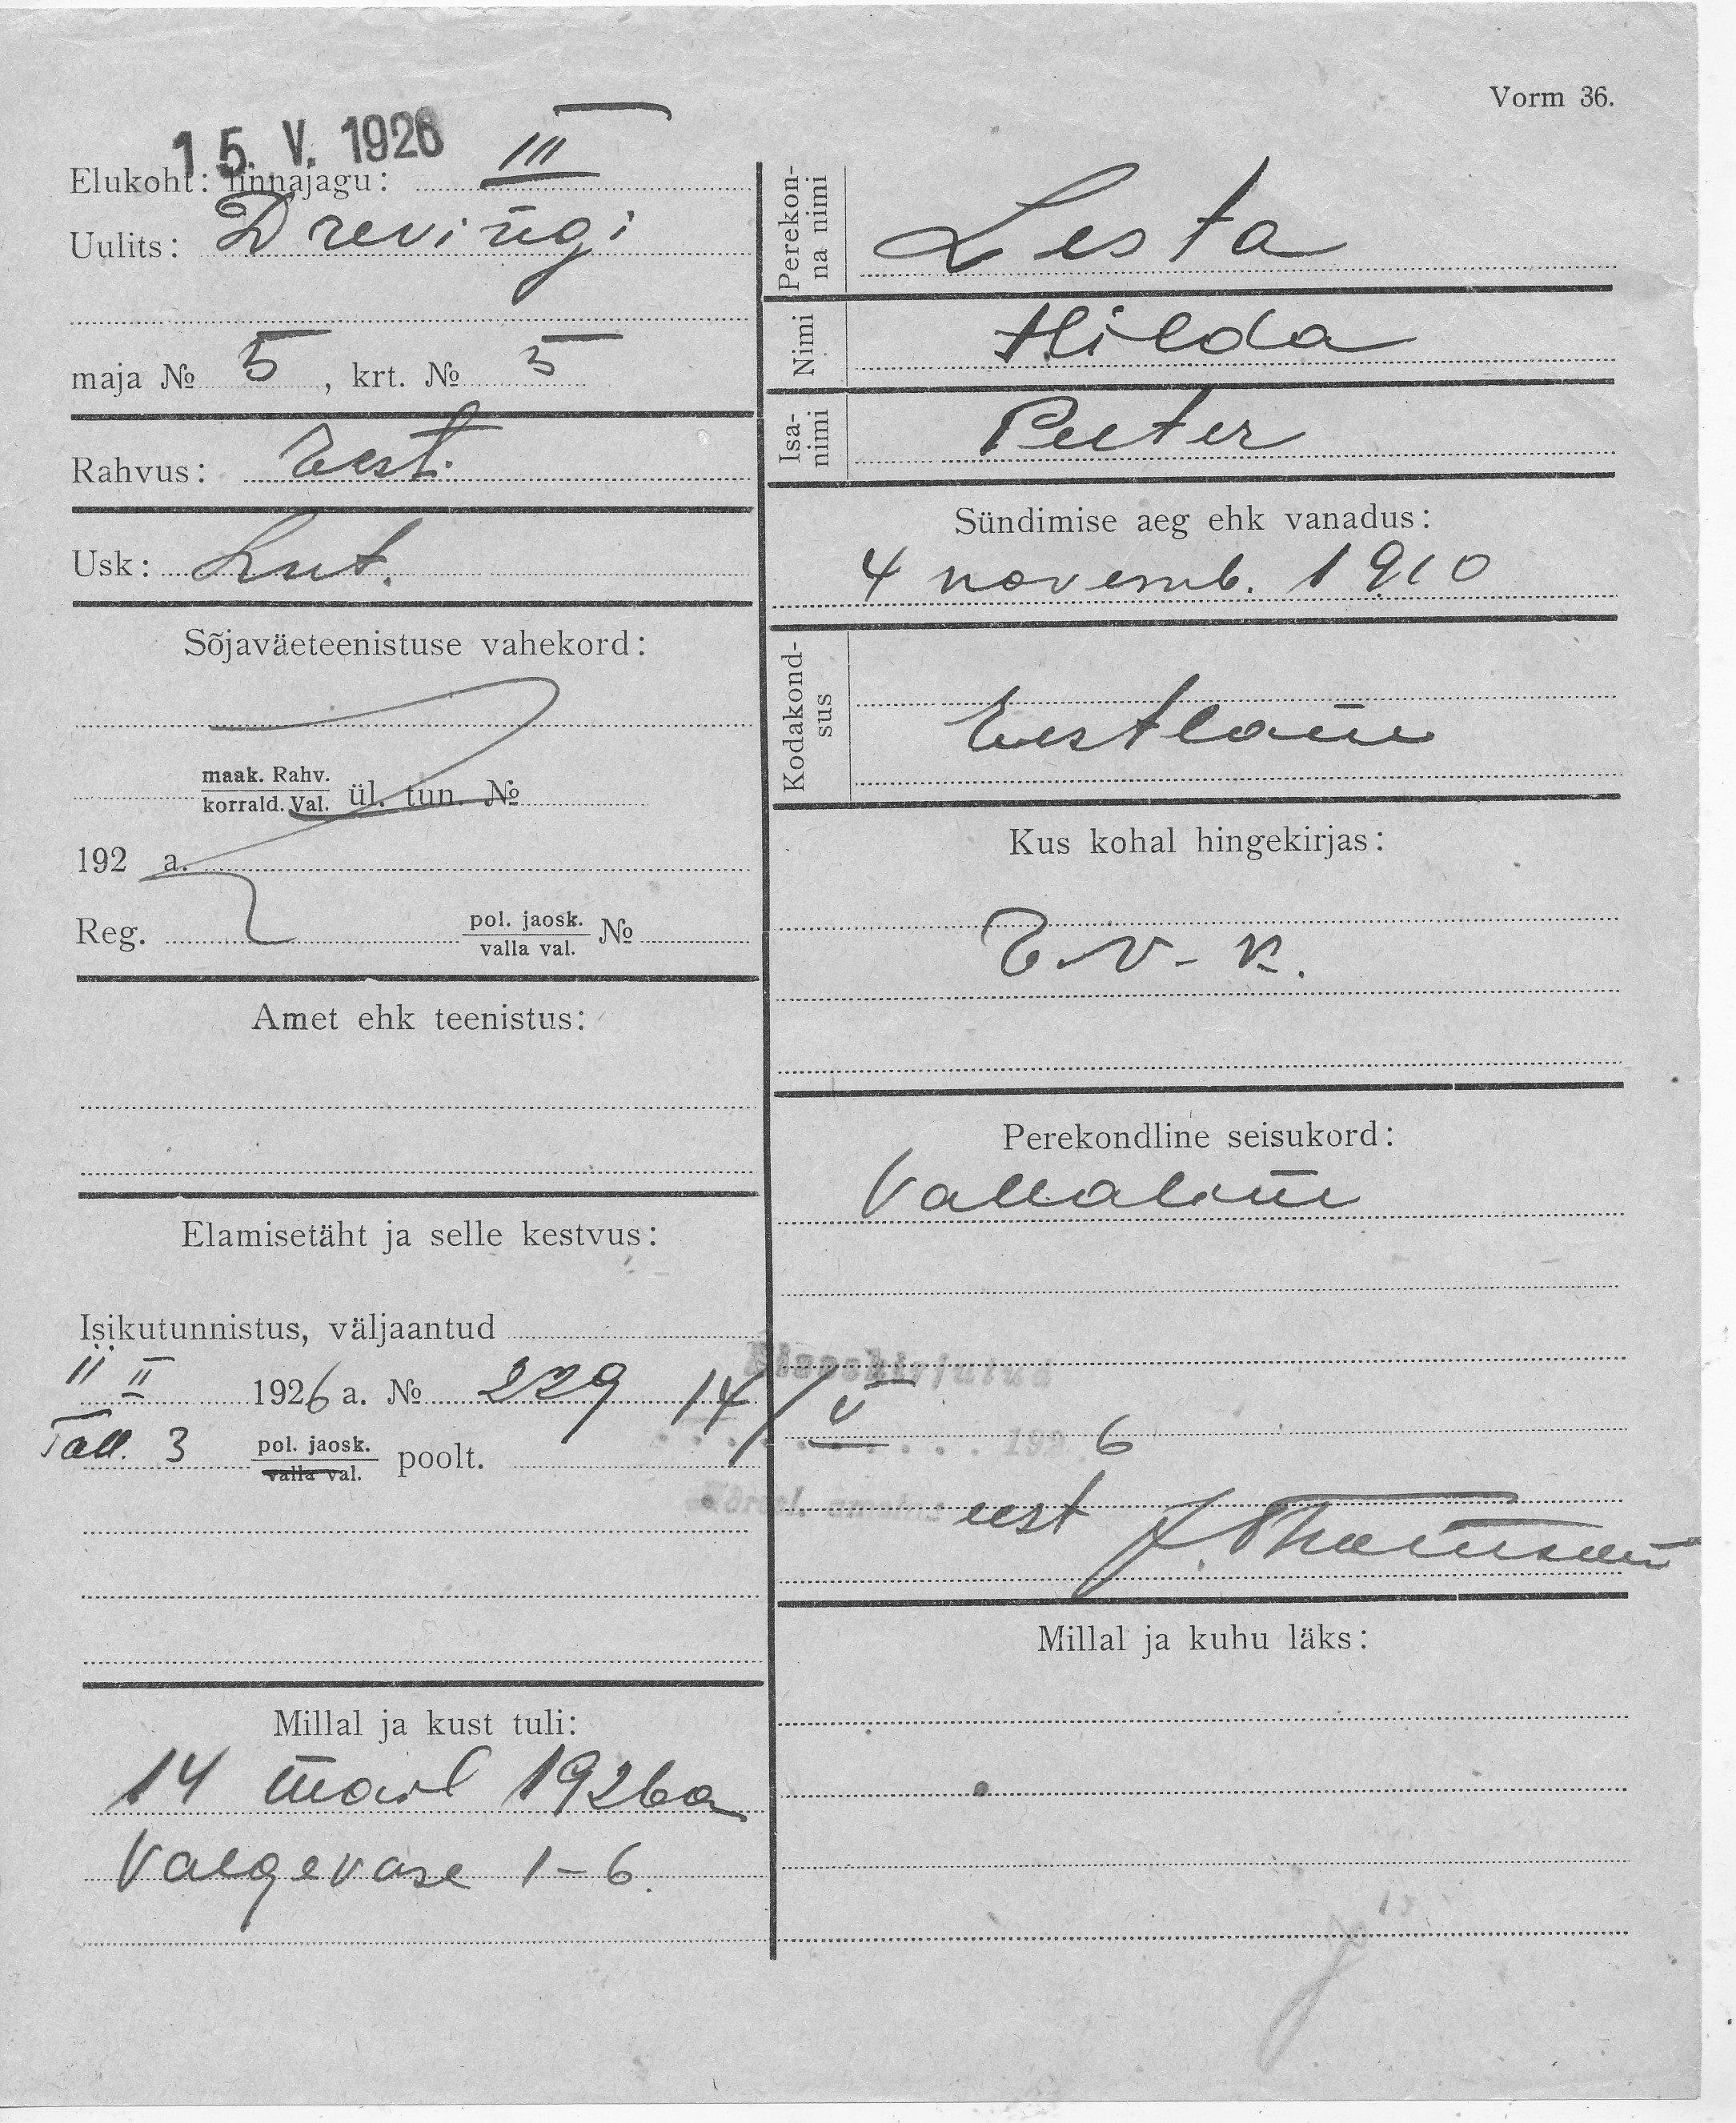 Vorm 36.
15. V. 1926
Elukoht: linnajagu: III
Uulits: Drevingi
maja № 5, krt. № 5
Rahvus: Eest.
Usk: Lut.
Sõjaväeteenistuse vahekord:
maak. Rahv.
korrald. Val. ül. tun. №
192 a.
Reg. pol. jaosk.
valla val. №
Amet ehk teenistus:
Elamisetäht ja selle kestvus:
Isikutunnistus, väljaantud
11 II 1926 a. № 229
Tall. 3 pol. jaosk.
valla val. poolt.
Millal ja kust tuli:
14 mail 1926a
Valgevase 1-6.
Perekon-
na nimi
Lesta
Nimi
Hilda
Isa-
nimi
Peeter
Sündimise aeg ehk vanadus:
4 novemb. 1910
Kodakond-
sus
Eestlane
Kus kohal hingekirjas:
E. v. k.
Perekondline seisukord:
Vallaline
Sissekirjutud
14/V 192 6
eest
Millal ja kuhu läks: